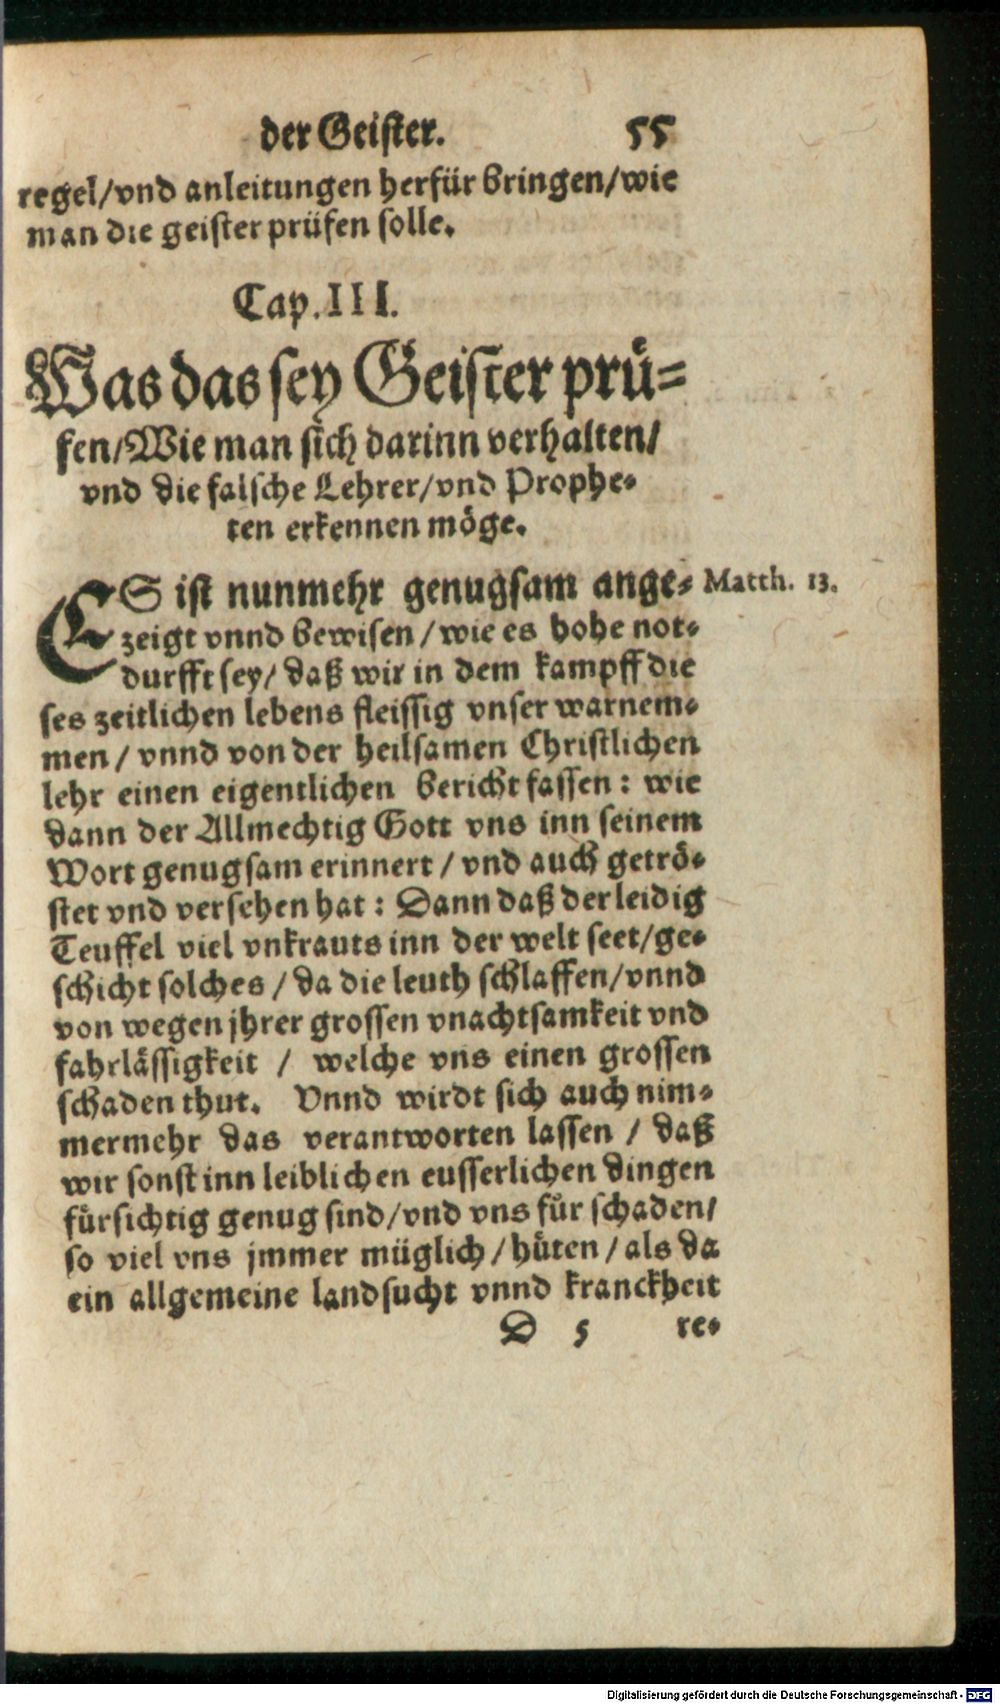 der Geister. 55
regel/vnd anleitungen herfür bringen/wie
man die geister prüfen solle.
Cap. III.
Was das sey Geister prü-
fen/Wie man sich darinn verhalten/
vnd die falsche Lehrer/vnd Prophe-
ten erkennen möge.
ES ist nunmehr genugsam ange- Matth. 13.
zeigt vnnd bewisen / wie es hohe not-
durfft sey / daß wir in dem kampff die
ses zeitlichen lebens fleissig vnser warnem-
men / vnnd von der heilsamen Christlichen
lehr einen eigentlichen bericht fassen : wie
dann der Allmechtig Gott vns inn seinem
Wort genugsam erinnert / vnd auch getrö-
stet vnd versehen hat : Dann daß der leidig
Teuffel viel vnkrauts inn der welt seet/ge-
schicht solches / da die leuth schlaffen/vnnd
von wegen jhrer grossen vnachtsamkeit vnd
fahrlässigkeit / welche vns einen grossen
schaden thut. Vnnd wirdt sich auch nim-
mermehr das verantworten lassen / daß
wir sonst inn leiblichen eusserlichen dingen
fürsichtig genug sind/vnd vns für schaden/
so viel vns jmmer müglich / hüten / als da
ein allgemeine landsucht vnnd kranckheit
D 5 re-
Digitalisierung gefördert durch die Deutsche Forschungsgemeinschaft - DFG